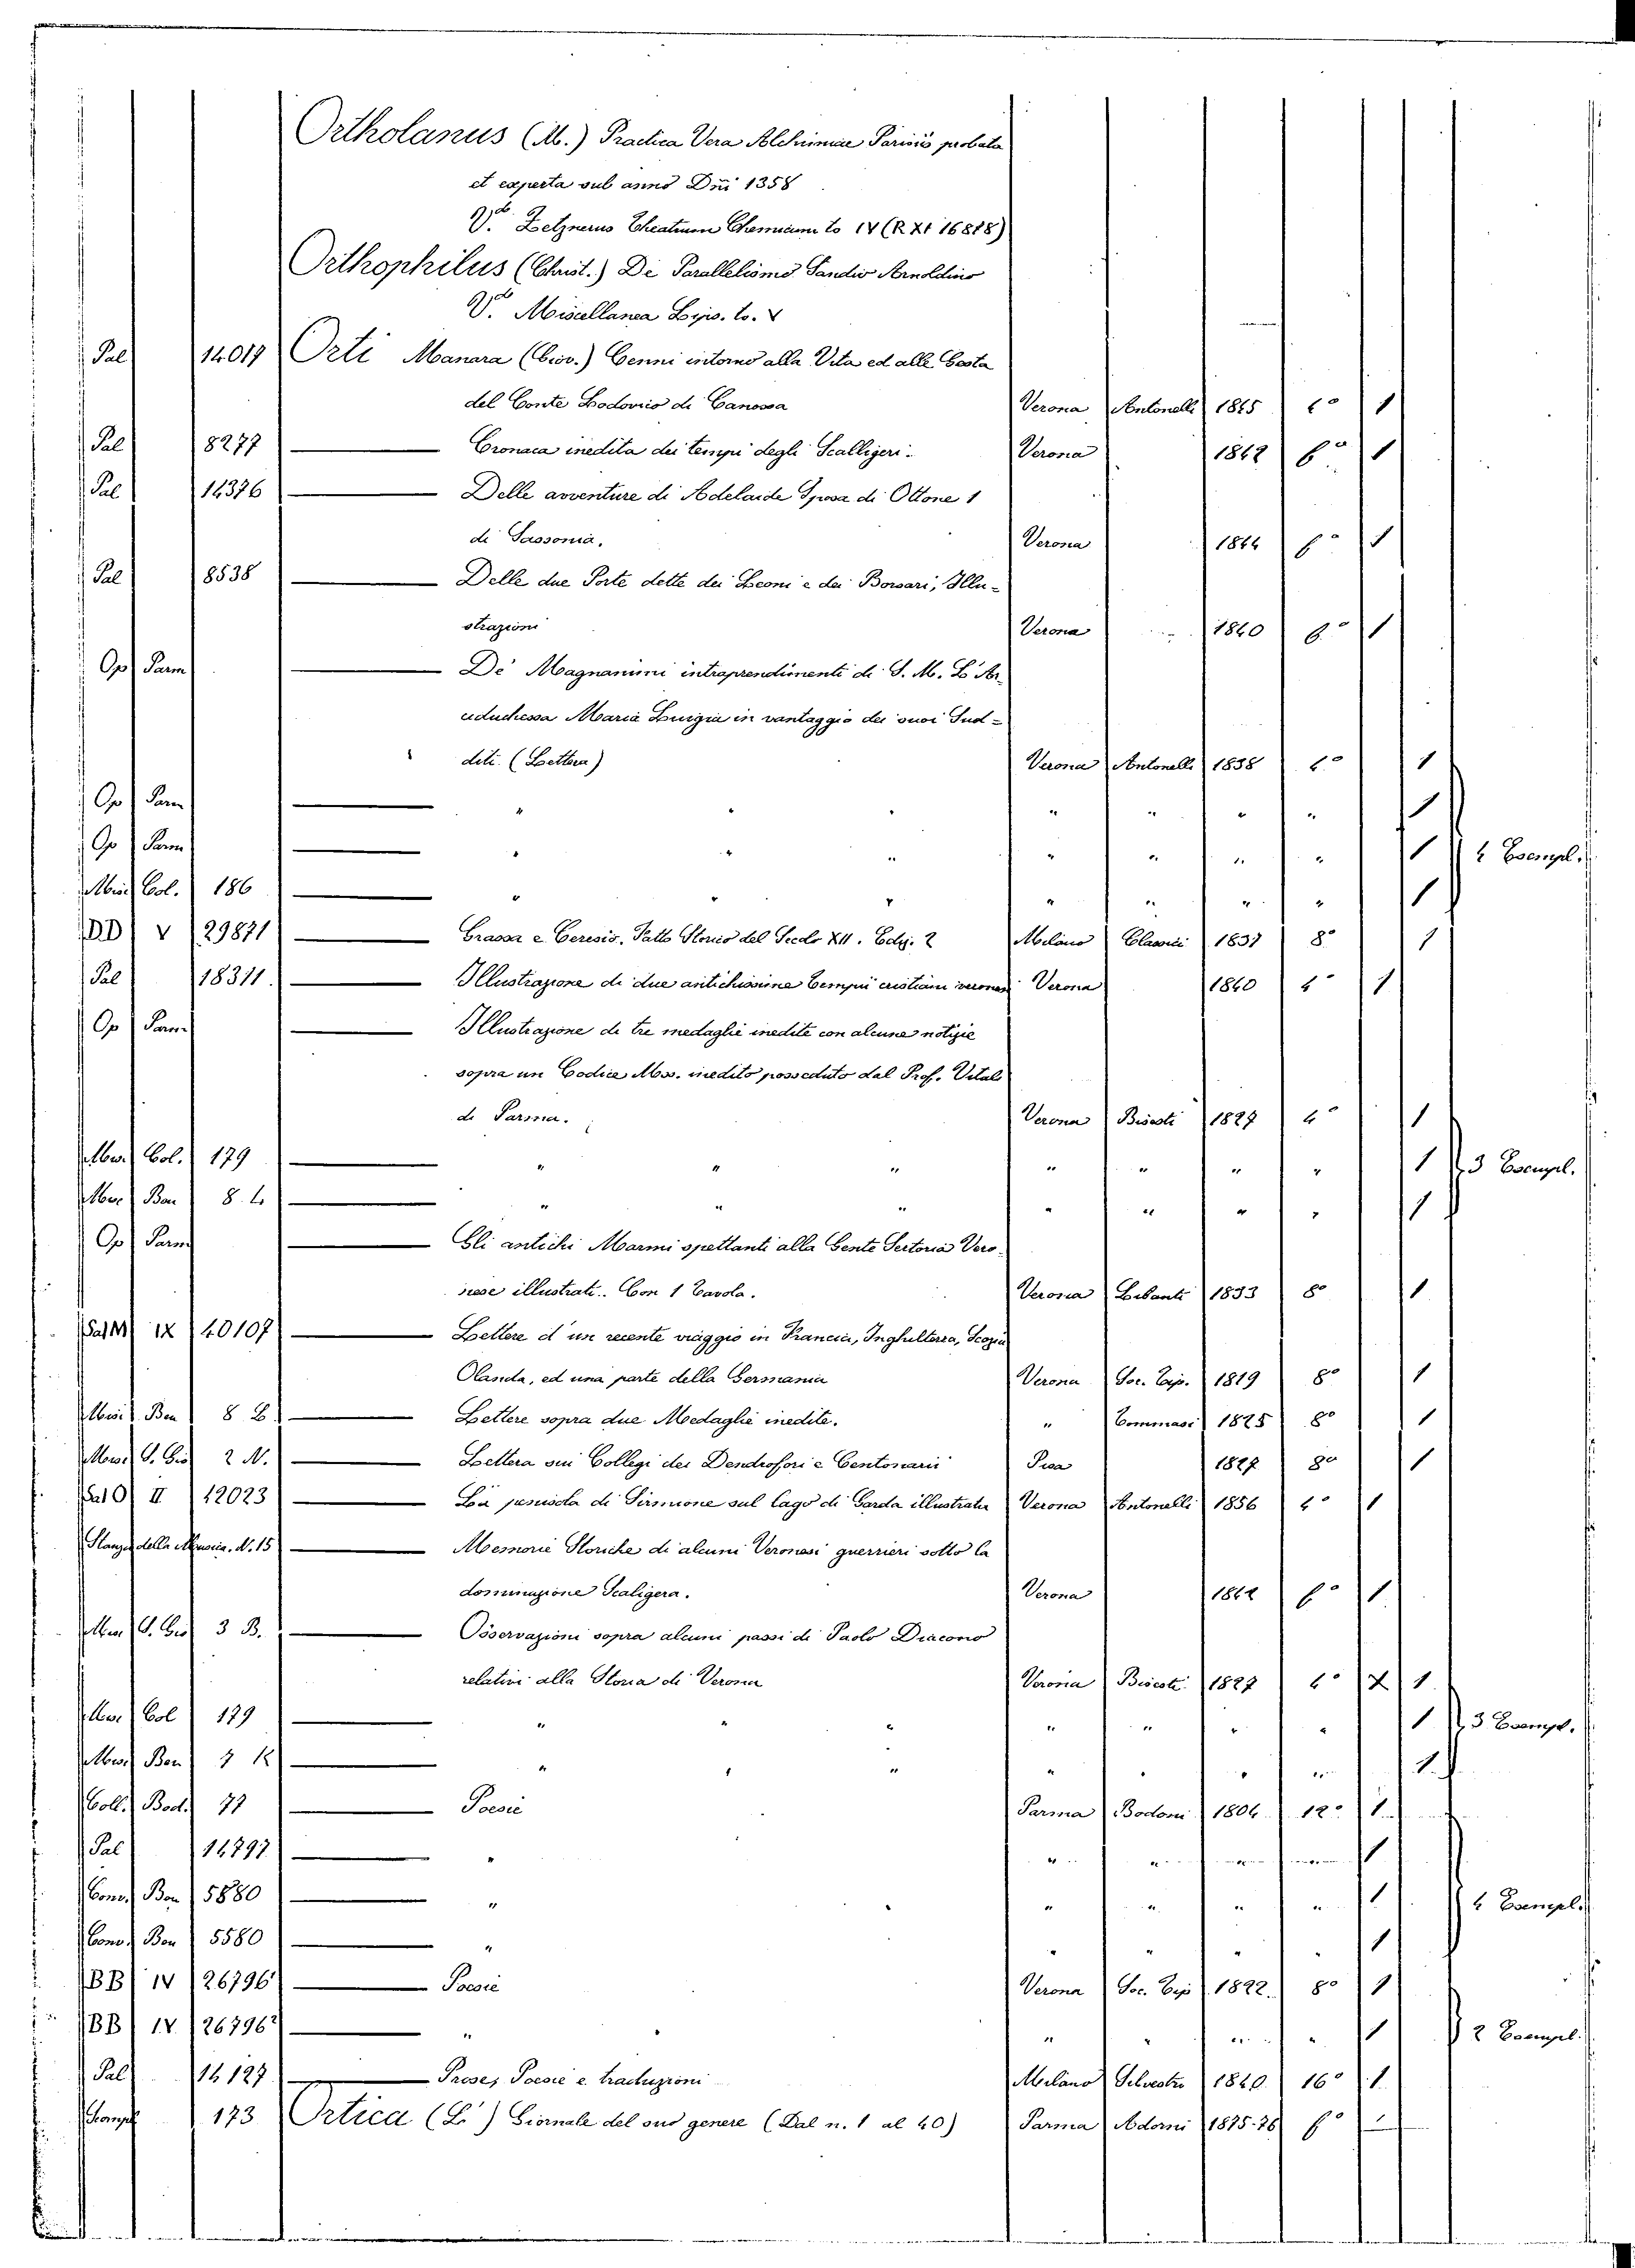 Ortholanus (M.) Practica Vera Alchimiae Parisiis probata
et experta sub anno Dni 1358
Vd. Zetznerus Theatrum Chemicum to IV (R XI 16818)
Orthophilus (Christ.) De Parallelismo
Vd. Miscellanea Lips. to. V
Pal 14019 Orti Manara (Giov.) Cenni intorno alla Vita ed alle Gesta
del Conte Lodovico di Canossa Verona Antonelli 1845 4° 1
Pal 8277 Cronaca inedita dei tempi degli Scalligeri. Verona 1842 f° 1
Pal 14376 Delle avventure di Adelaide Sposa di Ottone 1
di Sassonia. Verona 1844 f° 1
Pal 8538 Delle due Porte dette dei Leoni e dei Borsari, Illu-
strazioni Verona 1840 f° 1
Op Parm De' Magnanimi intraprendimenti di S. M. L'Ar-
ciduchessa Maria Luigia in vantaggio dei suoi Sud-
diti. (Lettera) Verona Antonelli 1838 4° 1
Op Parm " " " " " " " 1
Op Parm " " " " " " " 1 4 Esempl.
Misc Col. 186 " " " " " " " 1
DD V 29871 Grassa e Ceresio, Fatto Storico del Secolo XII. Ediz. 2 Milano Classici 1837 8° 1
Pal 18311 Illustrazione di due antichissime tempii cristiani veronesi Verona 1840 4° 1
Op Parm Illustrazione di tre medaglie inedite con alcune notizie
sopra un Codice Mss. inedito posseduto dal Prof. Vitali
di Parma. Verona Bisesti 1827 4° 1
Misc Col. 179 " " " " " " " 1 3 Esempl.
Misc Ben 8. L " " " " " " " 1
Op Parm Gli antichi Marmi spettanti alla Gente Sertoria Vero-
nese illustrati. Con 1 Tavola. Verona Libanti 1833 8° 1
Sal M IX 40107 Lettere d'un recente viaggio in Francia, Inghilterra, Scozia
Olanda, ed una parte della Germania Verona Soc. Tip. 1819 8° 1
Misc Ben 8 L Lettere sopra due Medaglie inedite. " Tommasi 1825 8° 1
Misc S. Gio 2 N. Lettera sui Collegi dei Dendrofori e Centonarii Pisa 1827 8° 1
Sal O II 12023 La penisola di Sirmione sul lago di Garda illustrata Verona Antonelli 1856 4° 1
Stanza della Musica. N. 15 Memorie Storiche di alcuni Veronesi guerrieri sotto la
dominazione Scaligera. Verona 1842 f° 1
Misc S. Gio 3 B. Osservazioni sopra alcuni passi di Paolo Diacono
relativi alla Storia di Verona Verona Bisesti 1827 4° 1
Misc Col 179 " " " " " " " 1 3 Esempl.
Misc Ben 7 K " " " " " " " 1
Coll. Bod. 77 Poesie Parma Bodoni 1804 12° 1
Pal 14797 " " " " " 1
Conv. Bon 5880 " " " " " 1 4 Esempl.
Conv. Bon 5580 " " " " " 1
BB IV 26796 Poesie Verona Soc. Tip 1822. 8° 1
BB IV 26796² " " " " " 1 2 Esempl.
Pal 14127 Prose, Poesie e traduzioni Milano Silvestri 1840. 16° 1
173 Ortica (L') Giornale del suo genere (Dal n. 1 al 40) Parma Adorni 1875-76 f° 1